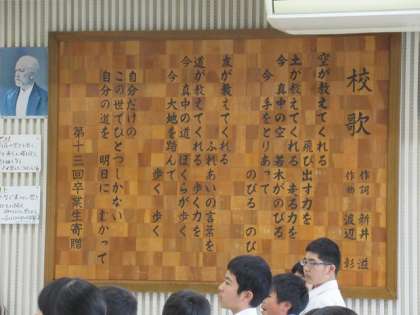 校歌
作詞 新井 滋
作曲 渡辺 彰
空が教えてくれる
飛び出す力を
土が教えてくれる 走る力を
今 真中の空 若木がのびる
今 手をとりあって
のびる のび
友が教えてくれる
ふれあいの言葉を
道が教えてくれる 歩く力を
今 真中の道 ぼくらが歩く
今 大地を踏んで
歩く 歩く
自分だけの
この世でひとつしかない
自分の道を 明日に 向かって
第十三回卒業生寄贈